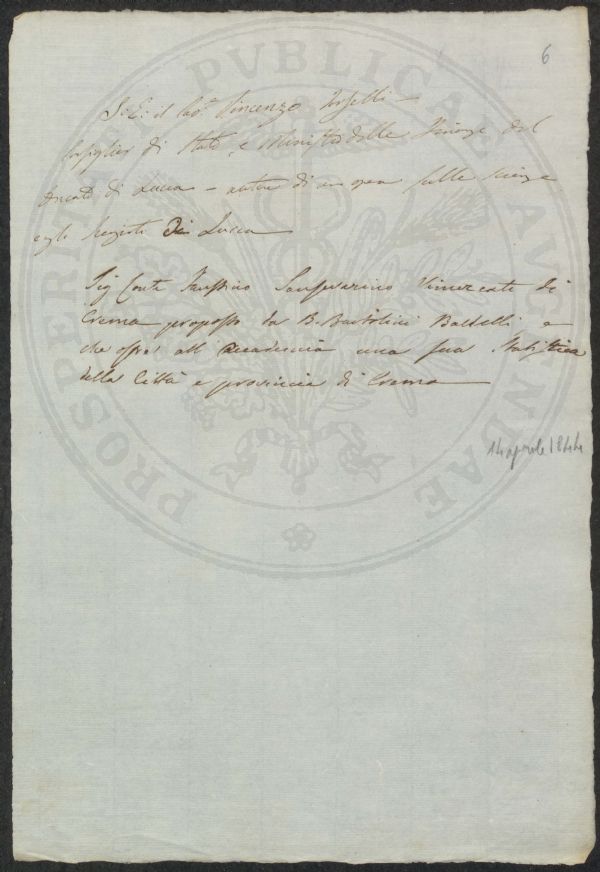 6
S. E. il Cav.r Vincenzo Torselli –
Consiglier di Stato, e Ministro delle Finanze del
Ducato di Lucca – autore di un opera sulle
negli di Lucca
Sig Conte Faustino Sanseverino Vimercati di
Crema proposto da B. Bartolini Baldelli e
che offrì all' accademia una sua Statistica
della Città e provincia di Crema
14 aprile 1844
PROSPERITATI PVBLICAE AVGENDAE